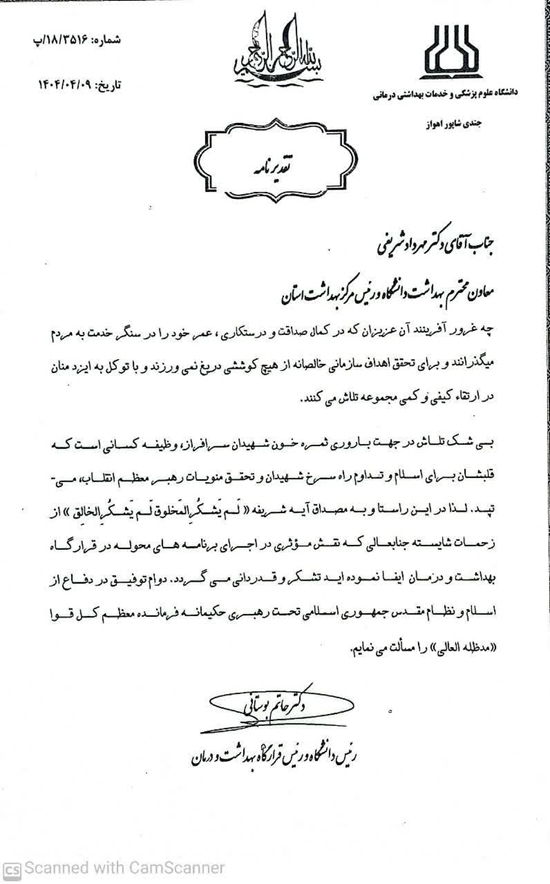 بسم الله الرحمن الرحیم
شماره: ۱۸/۳۵۱۶/پ
تاریخ: ۱۴۰۴/۰۴/۰۹
دانشگاه علوم پزشکی و خدمات بهداشتی درمانی
جندی شاپور اهواز
تقدیرنامه
جناب آقای دکتر مهرداد شریفی
معاون محترم بهداشت دانشگاه و رئیس مرکز بهداشت استان
چه غرور آفرینند آن عزیزان که در کمال صداقت و درستکاری، عمر خود را در سنگر خدمت به مردم
میگذرانند و برای تحقق اهداف سازمانی خالصانه از هیچ کوششی دریغ نمی ورزند و با توکل به ایزد منان
در ارتقاء کیفی و کمی مجموعه تلاش می کنند.
بی شک تلاش در جهت باروری ثمره خون شهیدان سرافراز، وظیفه کسانی است که
قلبشان برای اسلام و تداوم راه سرخ شهیدان و تحقق منویات رهبر معظم انقلاب، می-
تپد. لذا در این راستا و به مصداق آیه شریفه « لَم یَشکُرِ المَخلوق لَم یَشکُرِ الخالِق » از
زحمات شایسته جنابعالی که نقش مؤثری در اجرای برنامه های محوله در قرارگاه
بهداشت و درمان ایفا نموده اید تشکر و قدردانی می گردد. دوام توفیق در دفاع از
اسلام و نظام مقدس جمهوری اسلامی تحت رهبری حکیمانه فرمانده معظم کل قوا
«مدظله العالی» را مسألت می نمایم.
دکتر حاتم بوستانی
رئیس دانشگاه و رئیس قرارگاه بهداشت و درمان
CS Scanned with CamScanner